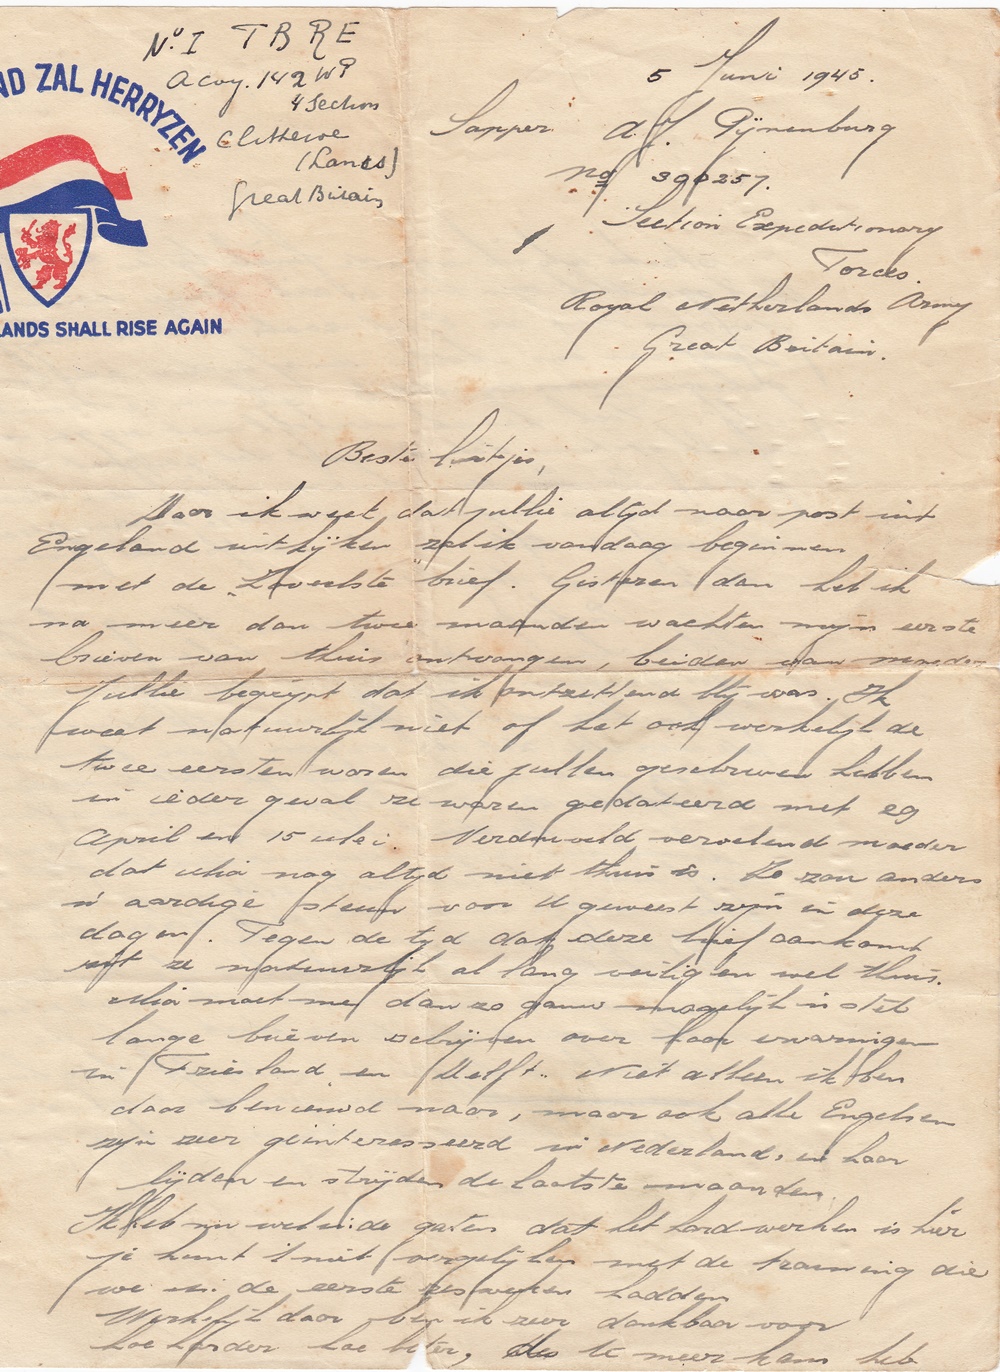 ND ZAL HERRYZEN
LANDS SHALL RISE AGAIN
No I TBRE
A coy. 142 WP
4 Section
Clitheroe
(Lancs)
Great Britain
5 Juni 1945.
Sapper A. J. Pijnenburg
No 390257.
Section Expeditionary
Forces.
Royal Netherlands Army
Great Britain.
Beste luitjes,
Daar ik weet dat jullie altijd naar post uit
Engeland uitkijken zal ik vandaag beginnen
met de "zoveelste" brief. Gisteren dan heb ik
na meer dan twee maanden wachten mijn eerste
brieven van thuis ontvangen, beiden van moeder
Jullie begrijpt dat ik ontzettend blij was. Ik
weet natuurlijk niet of het ook werkelijk de
twee eersten waren die jullen geschreven hebben
in ieder geval ze waren gedateerd met 29
April en 15 Mei. Verduveld vervelend moeder
dat Mia nog altijd niet thuis is. Ze zou anders
n' aardige steun voor U geweest zijn in deze
dagen. Tegen de tijd dat deze brief aankomt
zit ze natuurlijk al lang veilig en wel thuis.
Mia moet me dan zo gauw mogelijk is
lange brieven schrijven over haar ervaringen
in Friesland en Delft. Niet alleen ik ben
daar benieuwd naar, maar ook alle Engelsen
zijn zeer geinteresseerd in Nederland, en haar
lijden en strijden de laatste maanden.
Ik heb nu wel in de gaten dat het hard werken is hier
je kunt 't niet vergelijken met de training die
we in de eerste zes weken hadden
Werkelijk daar ben ik zeer dankbaar voor
hoe harder hoe beter, des te meer kans heb